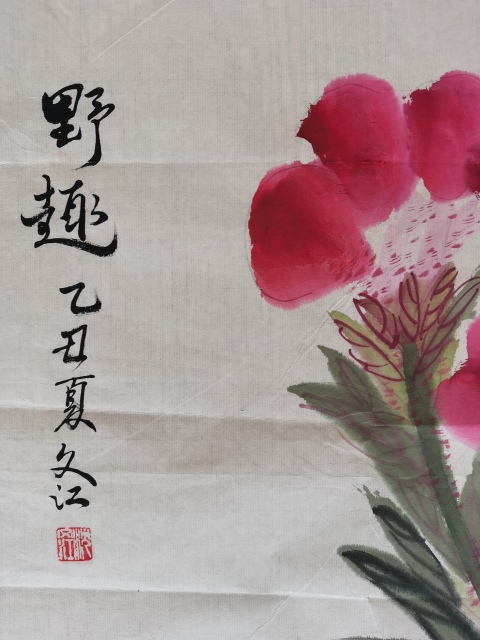 野趣
乙丑夏文江